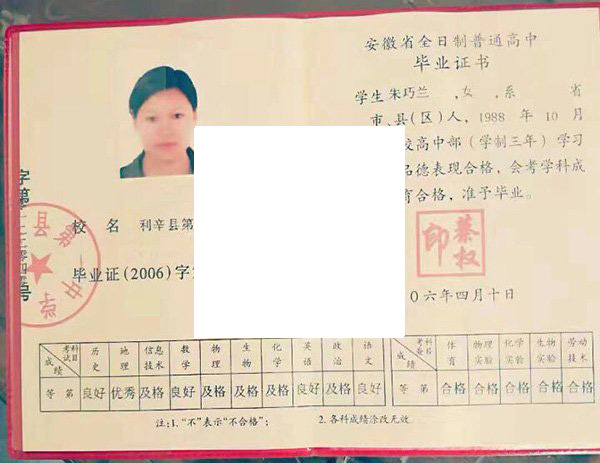 安徽省全日制普通高中
毕业证书
学生 朱巧兰 ,女 ,系 省
市、县(区)人, 1988 年 10 月
校高中部(学制三年)学习
品德表现合格,会考学科成
育合格,准予毕业。
校 名 利辛县第
毕业证(2006)字
秦权印
06年四月十日
考试科目 历史 地理 信息技术 数学 物理 生物 化学 英语 政治 语文
成绩 等第 良好 优秀 及格 良好 及格 及格 及格 良好 及格 良好
考查科目 体育 物理实验 化学实验 生物实验 劳动技术
成绩 等第 合格 合格 合格 合格 合格
注:1.“不”表示“不合格”; 2.各科成绩涂改无效。